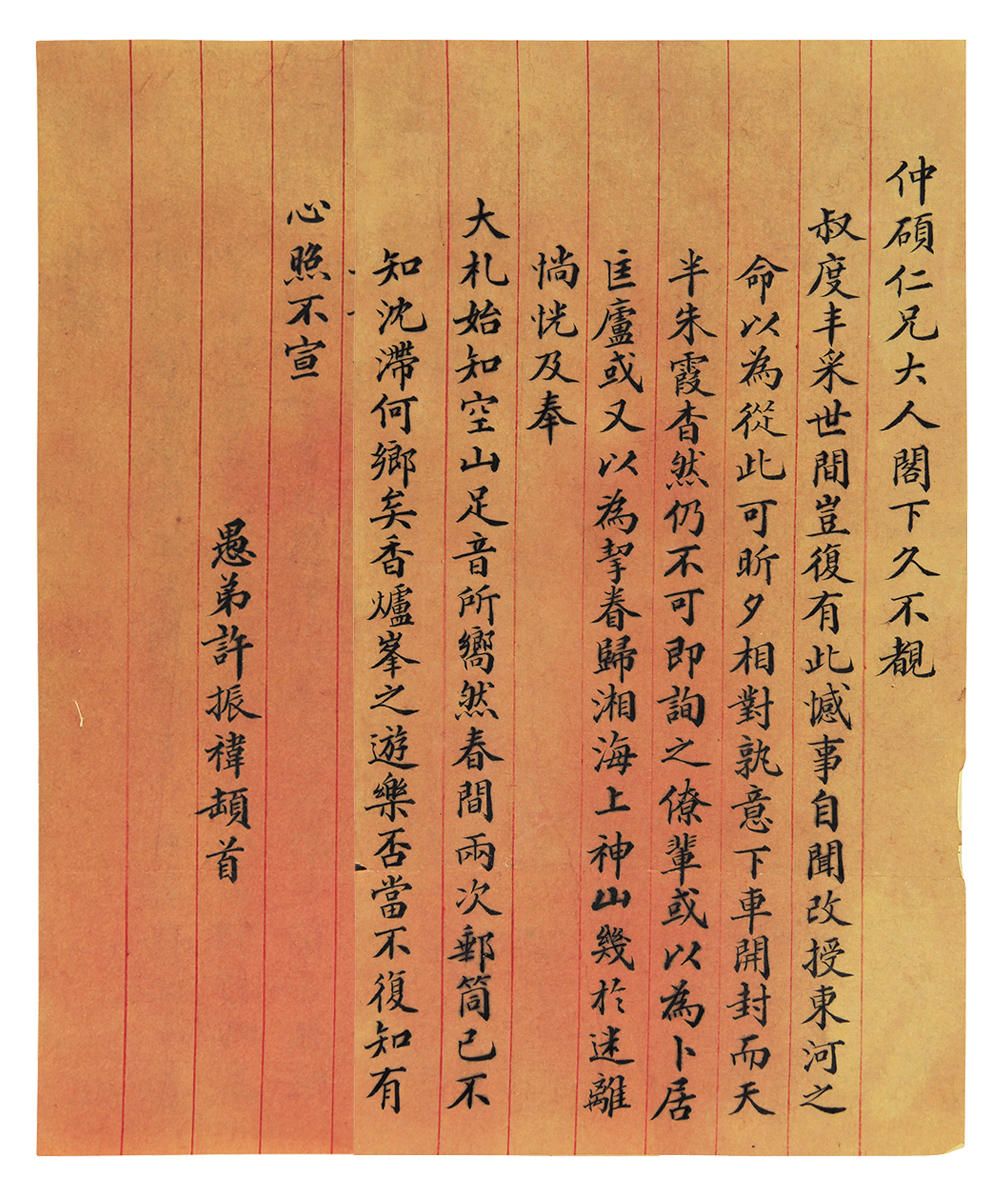 仲碩仁兄大人閣下久不覩
叔度丰采世間豈復有此憾事自聞改授東河之
命以為從此可昕夕相對孰意下車開封而天
半朱霞杳然仍不可即詢之僚輩或以為卜居
匡廬或又以為挈眷歸湘海上神山幾於迷離
惝恍及奉
大札始知空山足音所嚮然春間兩次郵筒已不
知沈滯何鄉矣香爐峯之遊樂否當不復知有
心照不宣
愚弟許振褘頓首